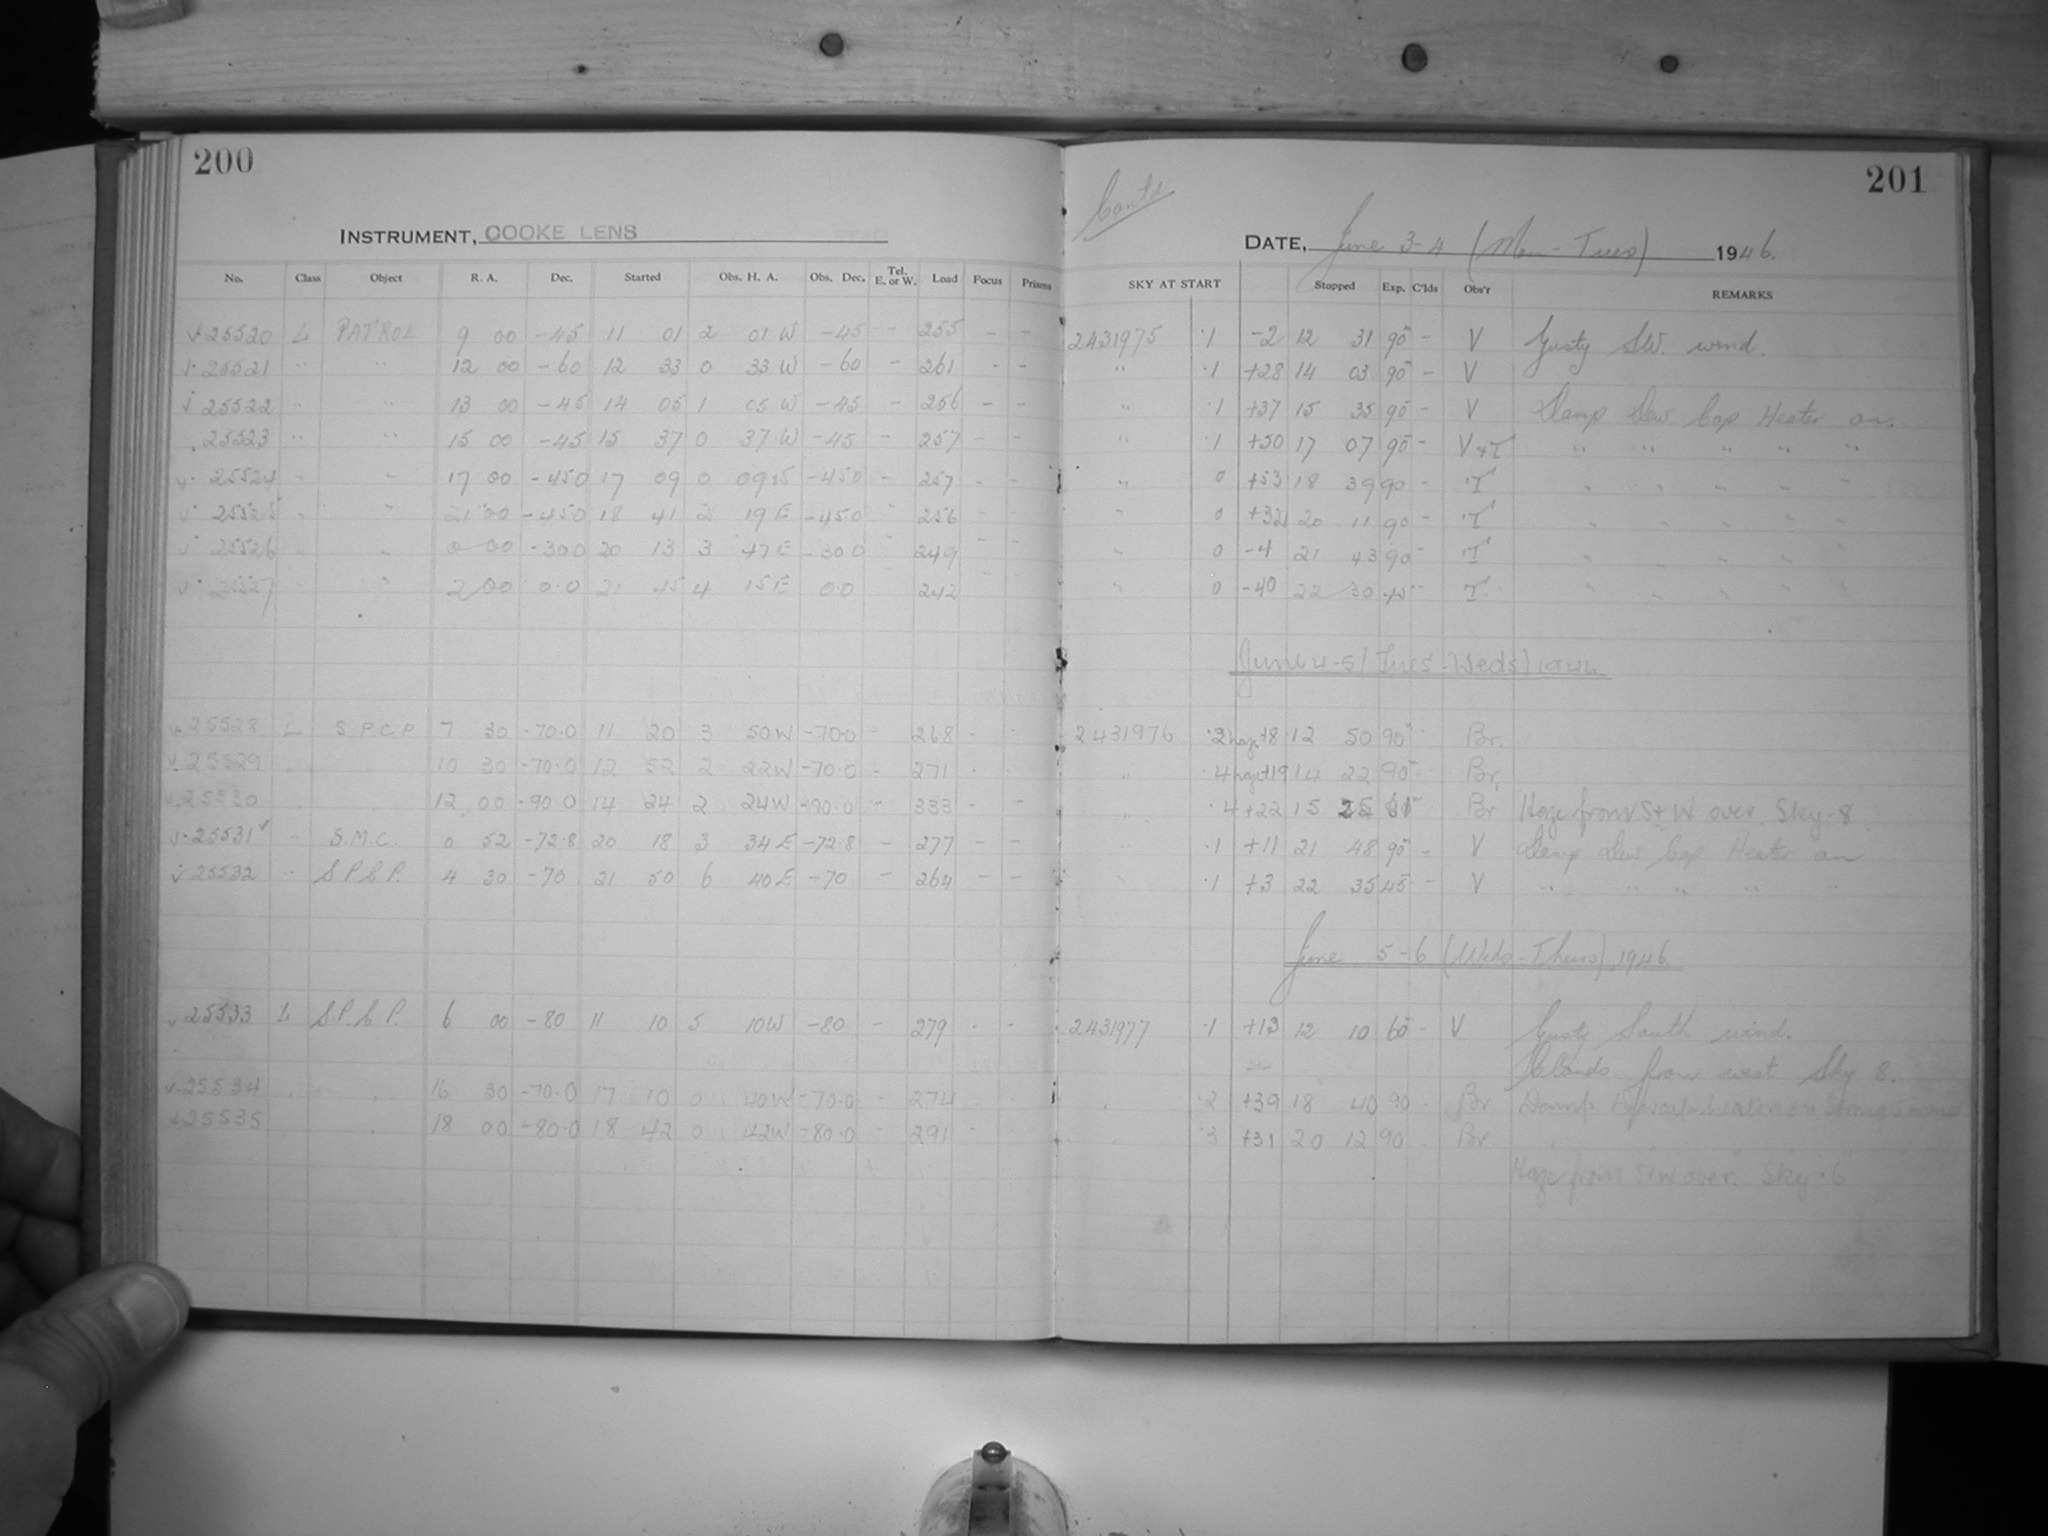 200
INSTRUMENT, COOKE LENS
No. Class Object R. A. Dec. Started Obs. H. A. Obs. Dec. Tel. E. or W. Load Focus Prisms
√ 25520 L PATROL 9 00 -45 11 01 2 01 W -45 - 255 - -
√ 25521 " " 12 00 -60 12 33 0 33 W -60 - 261 - -
√ 25522 " " 13 00 -45 14 05 1 05 W -45 - 256 - -
25523 " " 15 00 -45 15 37 0 37 W -45 - 257 - -
√ 25524 " " 17 00 -45.0 17 09 0 09 W -45.0 - 257 - -
√ 25525 " " 21 00 -45.0 18 41 2 19 E -45.0 " 256 - -
√ 25526 " " 0 00 -30.0 20 13 3 47 E -30.0 " 249 - -
√ 25527 " " 2 00 0.0 21 45 4 15 E 0.0 242 - -
√ 25528 L S.P.C.P 7 30 -70.0 11 20 3 50 W -70.0 - 268 - -
√ 25529 10 30 -70.0 12 52 2 22 W -70.0 - 271 - -
√ 25530 12 00 -90.0 14 24 2 24 W -90.0 - 333 - -
√ 25531 " S.M.C. 0 52 -72.8 20 18 3 34 E -72.8 - 277 - -
√ 25532 " S.P.C.P. 4 30 -70 21 50 6 40 E -70 - 264 - -
√ 25533 L S.P.C.P. 6 00 -80 11 10 5 10 W -80 - 279 - -
√ 25534 " " 16 30 -70.0 17 10 0 40 W -70.0 - 274 - -
√ 25535 " 18 00 -80.0 18 42 0 42 W -80.0 - 291 - -
201
Cont'd
DATE, June 3-4 (Mon-Tues) 1946.
SKY AT START Stopped Exp. C'lds Obs'r REMARKS
2431975 .1 -2 12 31 90 - V Gusty S.W. wind.
" .1 +28 14 03 90 - V
" .1 +37 15 35 90 - V Damp Dew Cap Heater on.
" .1 +50 17 07 90 - V & T " " " " "
" 0 +53 18 39 90 - T " " " " "
" 0 +32 20 11 90 - T " " " " "
" 0 -4 21 43 90 - T " " " " "
" 0 -40 22 30 45 - T " " " " "
June 4-5 (Tues-Weds) 1946
2431976 .2 haze +8 12 50 90 Br.
" .4 haze +19 14 22 90 Br.
" .4 +22 15 25 61 Br Haze from S+W over. Sky .8
" .1 +11 21 48 90 - V Damp Dew Cap Heater on
" .1 +3 22 35 45 - V " " " " "
June 5-6 (Weds-Thurs), 1946
2431977 .1 +13 12 10 60 - V Gusty South wind.
Clouds from west Sky 8.
" .2 +39 18 40 90 Br Damp
.3 +31 20 12 90 Br
Haze from SW over. Sky .6